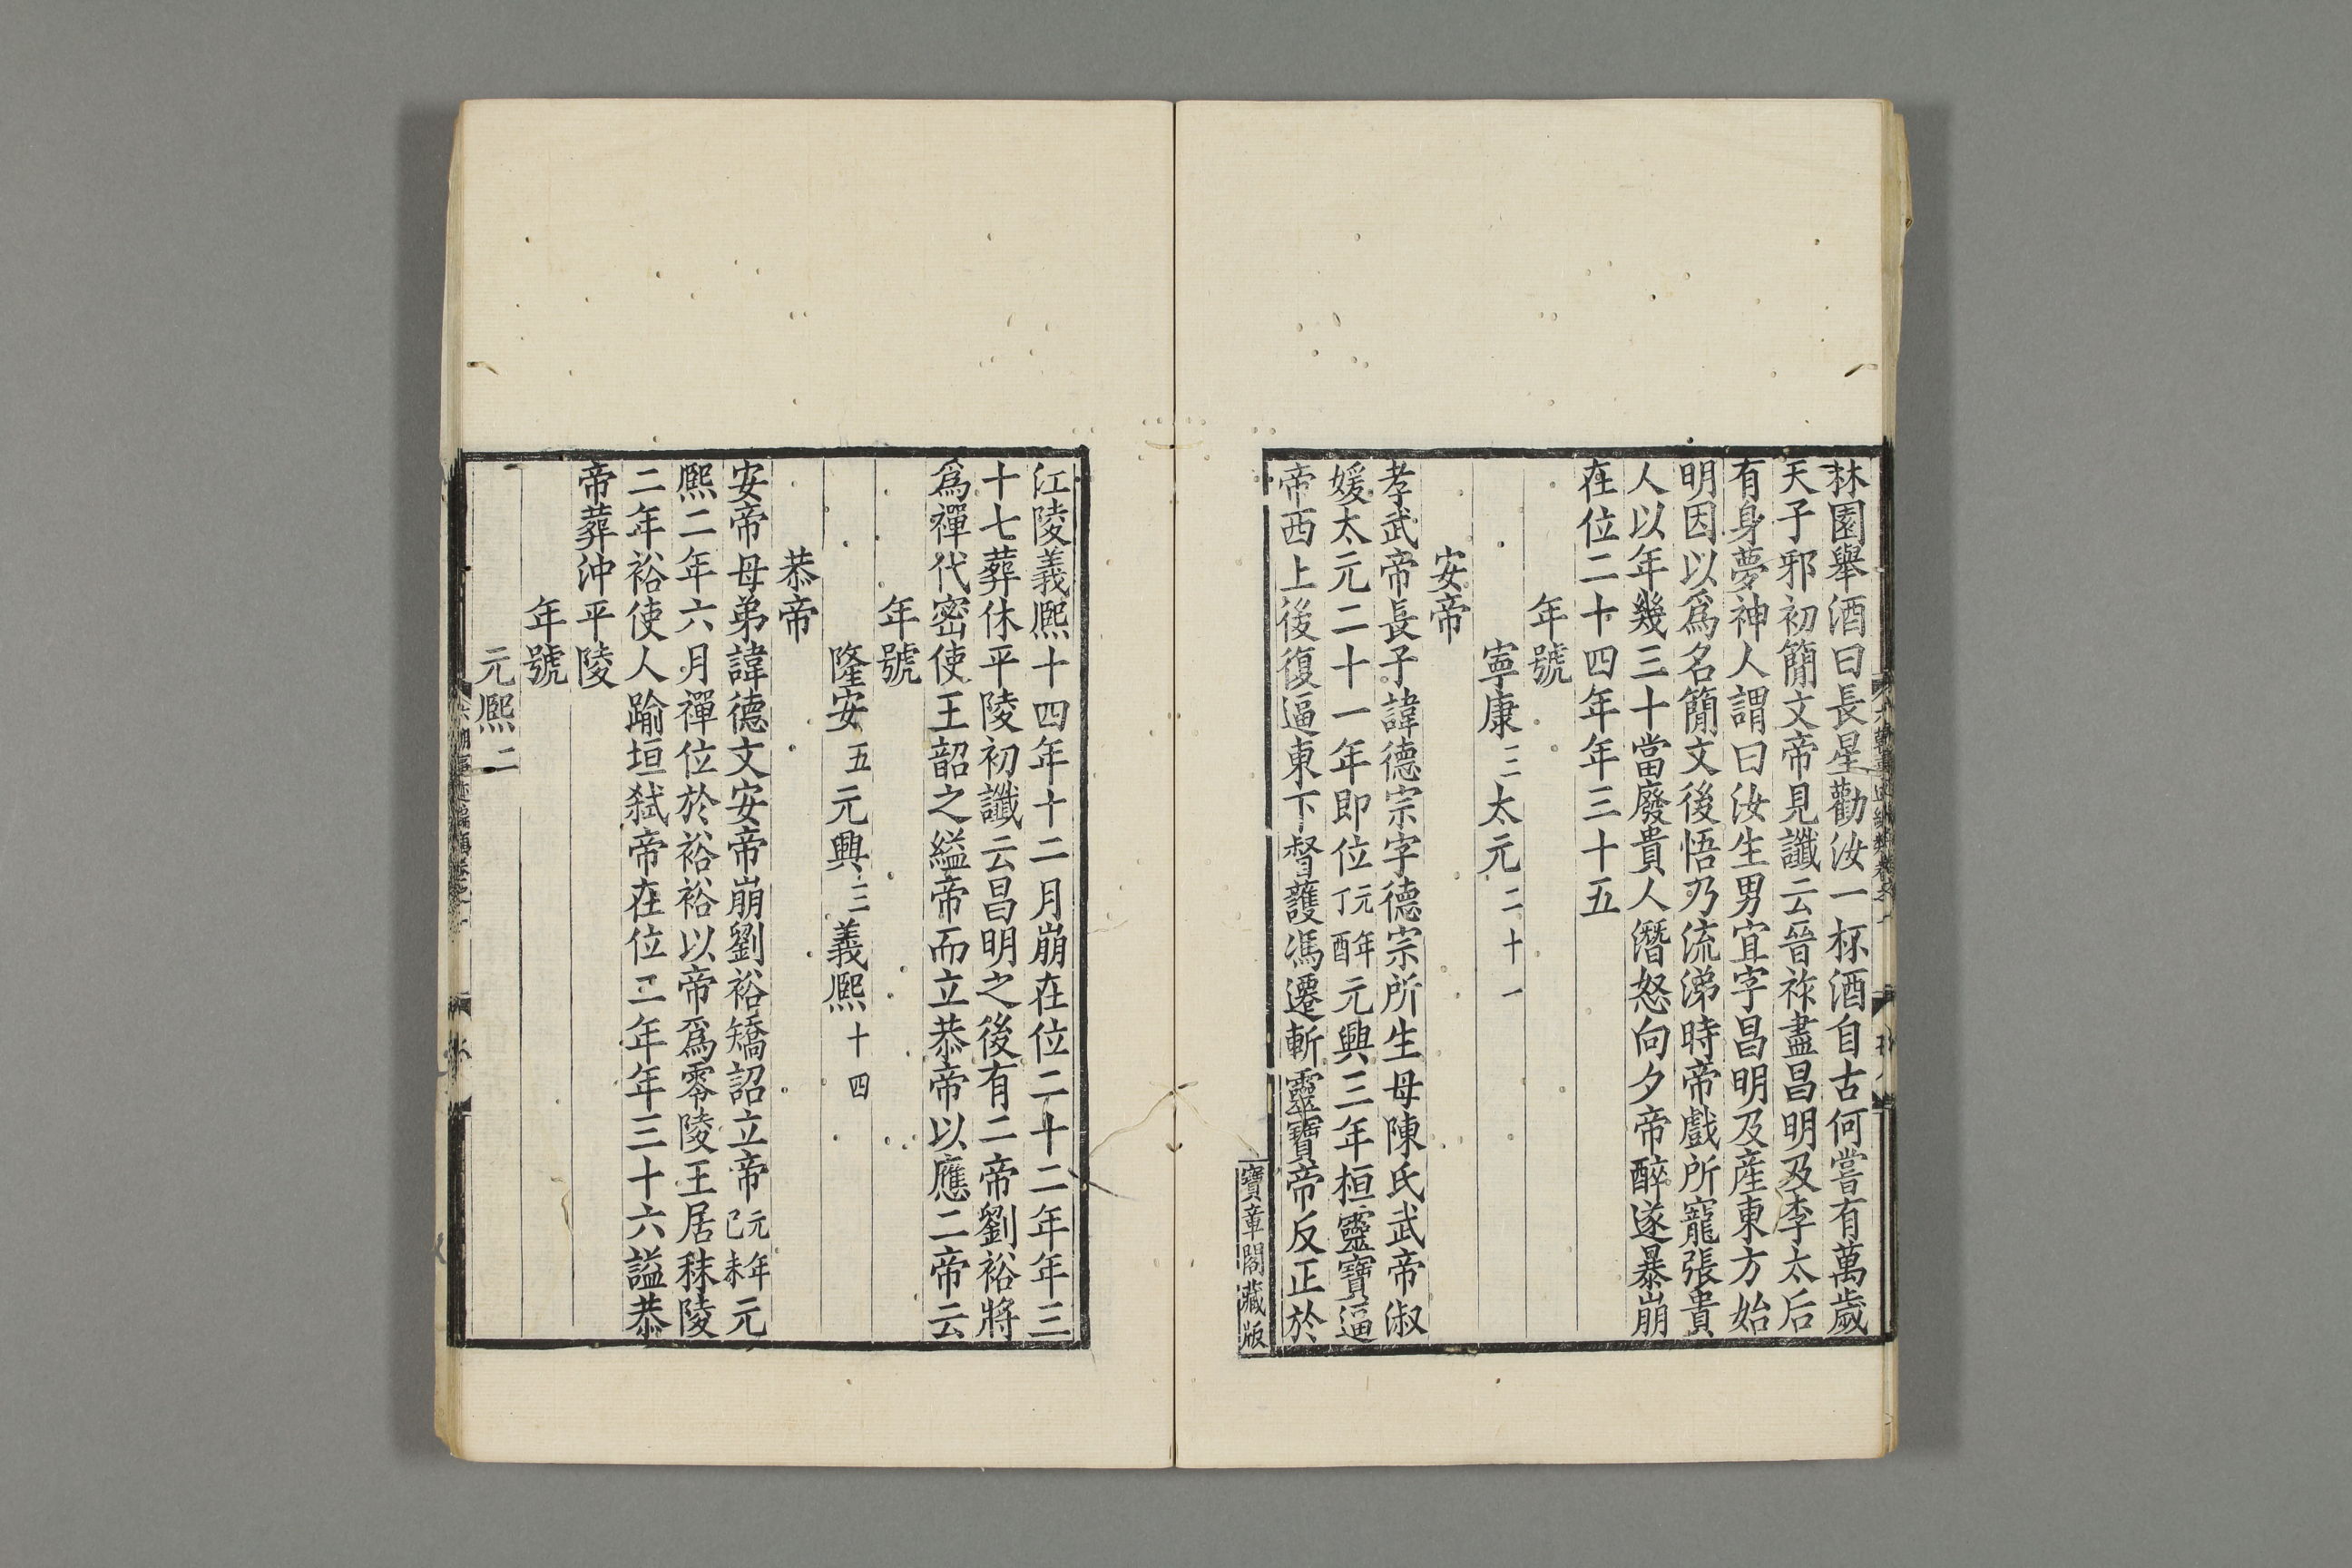 林園舉酒曰長星勸汝一杯酒自古何嘗有萬歲
天子邪初簡文帝見讖云晉祚盡昌明及李太后
有身夢神人謂曰汝生男宜字昌明及產東方始
明因以爲名簡文後悟乃流涕時帝戲所寵張貴
人以年幾三十當廢貴人潛怒向夕帝醉遂暴崩
在位二十四年年三十五
年號
寧康三太元二十一
安帝
孝武帝長子諱德宗字德宗所生母陳氏武帝淑
媛太元二十一年即位元年丁酉元興三年桓靈寶逼
帝西上後復逼東下督護馮遷斬靈寶帝反正於
寶章閣藏版
江陵義熙十四年十二月崩在位二十二年年三
十七葬休平陵初讖云昌明之後有二帝劉裕將
爲禪代密使王韶之縊帝而立恭帝以應二帝云
年號
隆安五元興三義熙十四
恭帝
安帝母弟諱德文安帝崩劉裕矯詔立帝元年己未元
熙二年六月禪位於裕裕以帝爲零陵王居秣陵
二年裕使人踰垣弒帝在位二年年三十六謚恭
帝葬沖平陵
年號
元熙二